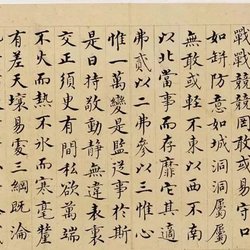 戰戰兢兢罔敢或易守口
如缾防意如城洞洞屬屬
無敢或輕不東以西不南
以北當事而存靡它其適
弗貳以二弗參以三惟心
惟一萬變是監從事於斯
是曰持敬動靜無違表裏
交正須臾有間私欲萬端
不火而熱不冰而寒毫釐
有差天壤易處三綱既淪